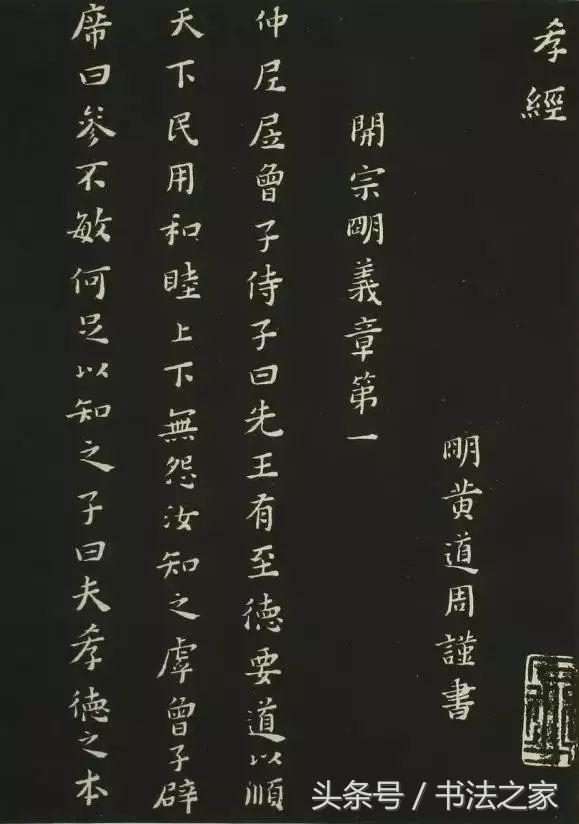 孝經
明黄道周謹書
開宗明義章第一
仲尼居曾子侍子曰先王有至德要道以順
天下民用和睦上下無怨汝知之虖曾子辟
席曰參不敏何足以知之子曰夫孝德之本
头条号 / 书法之家